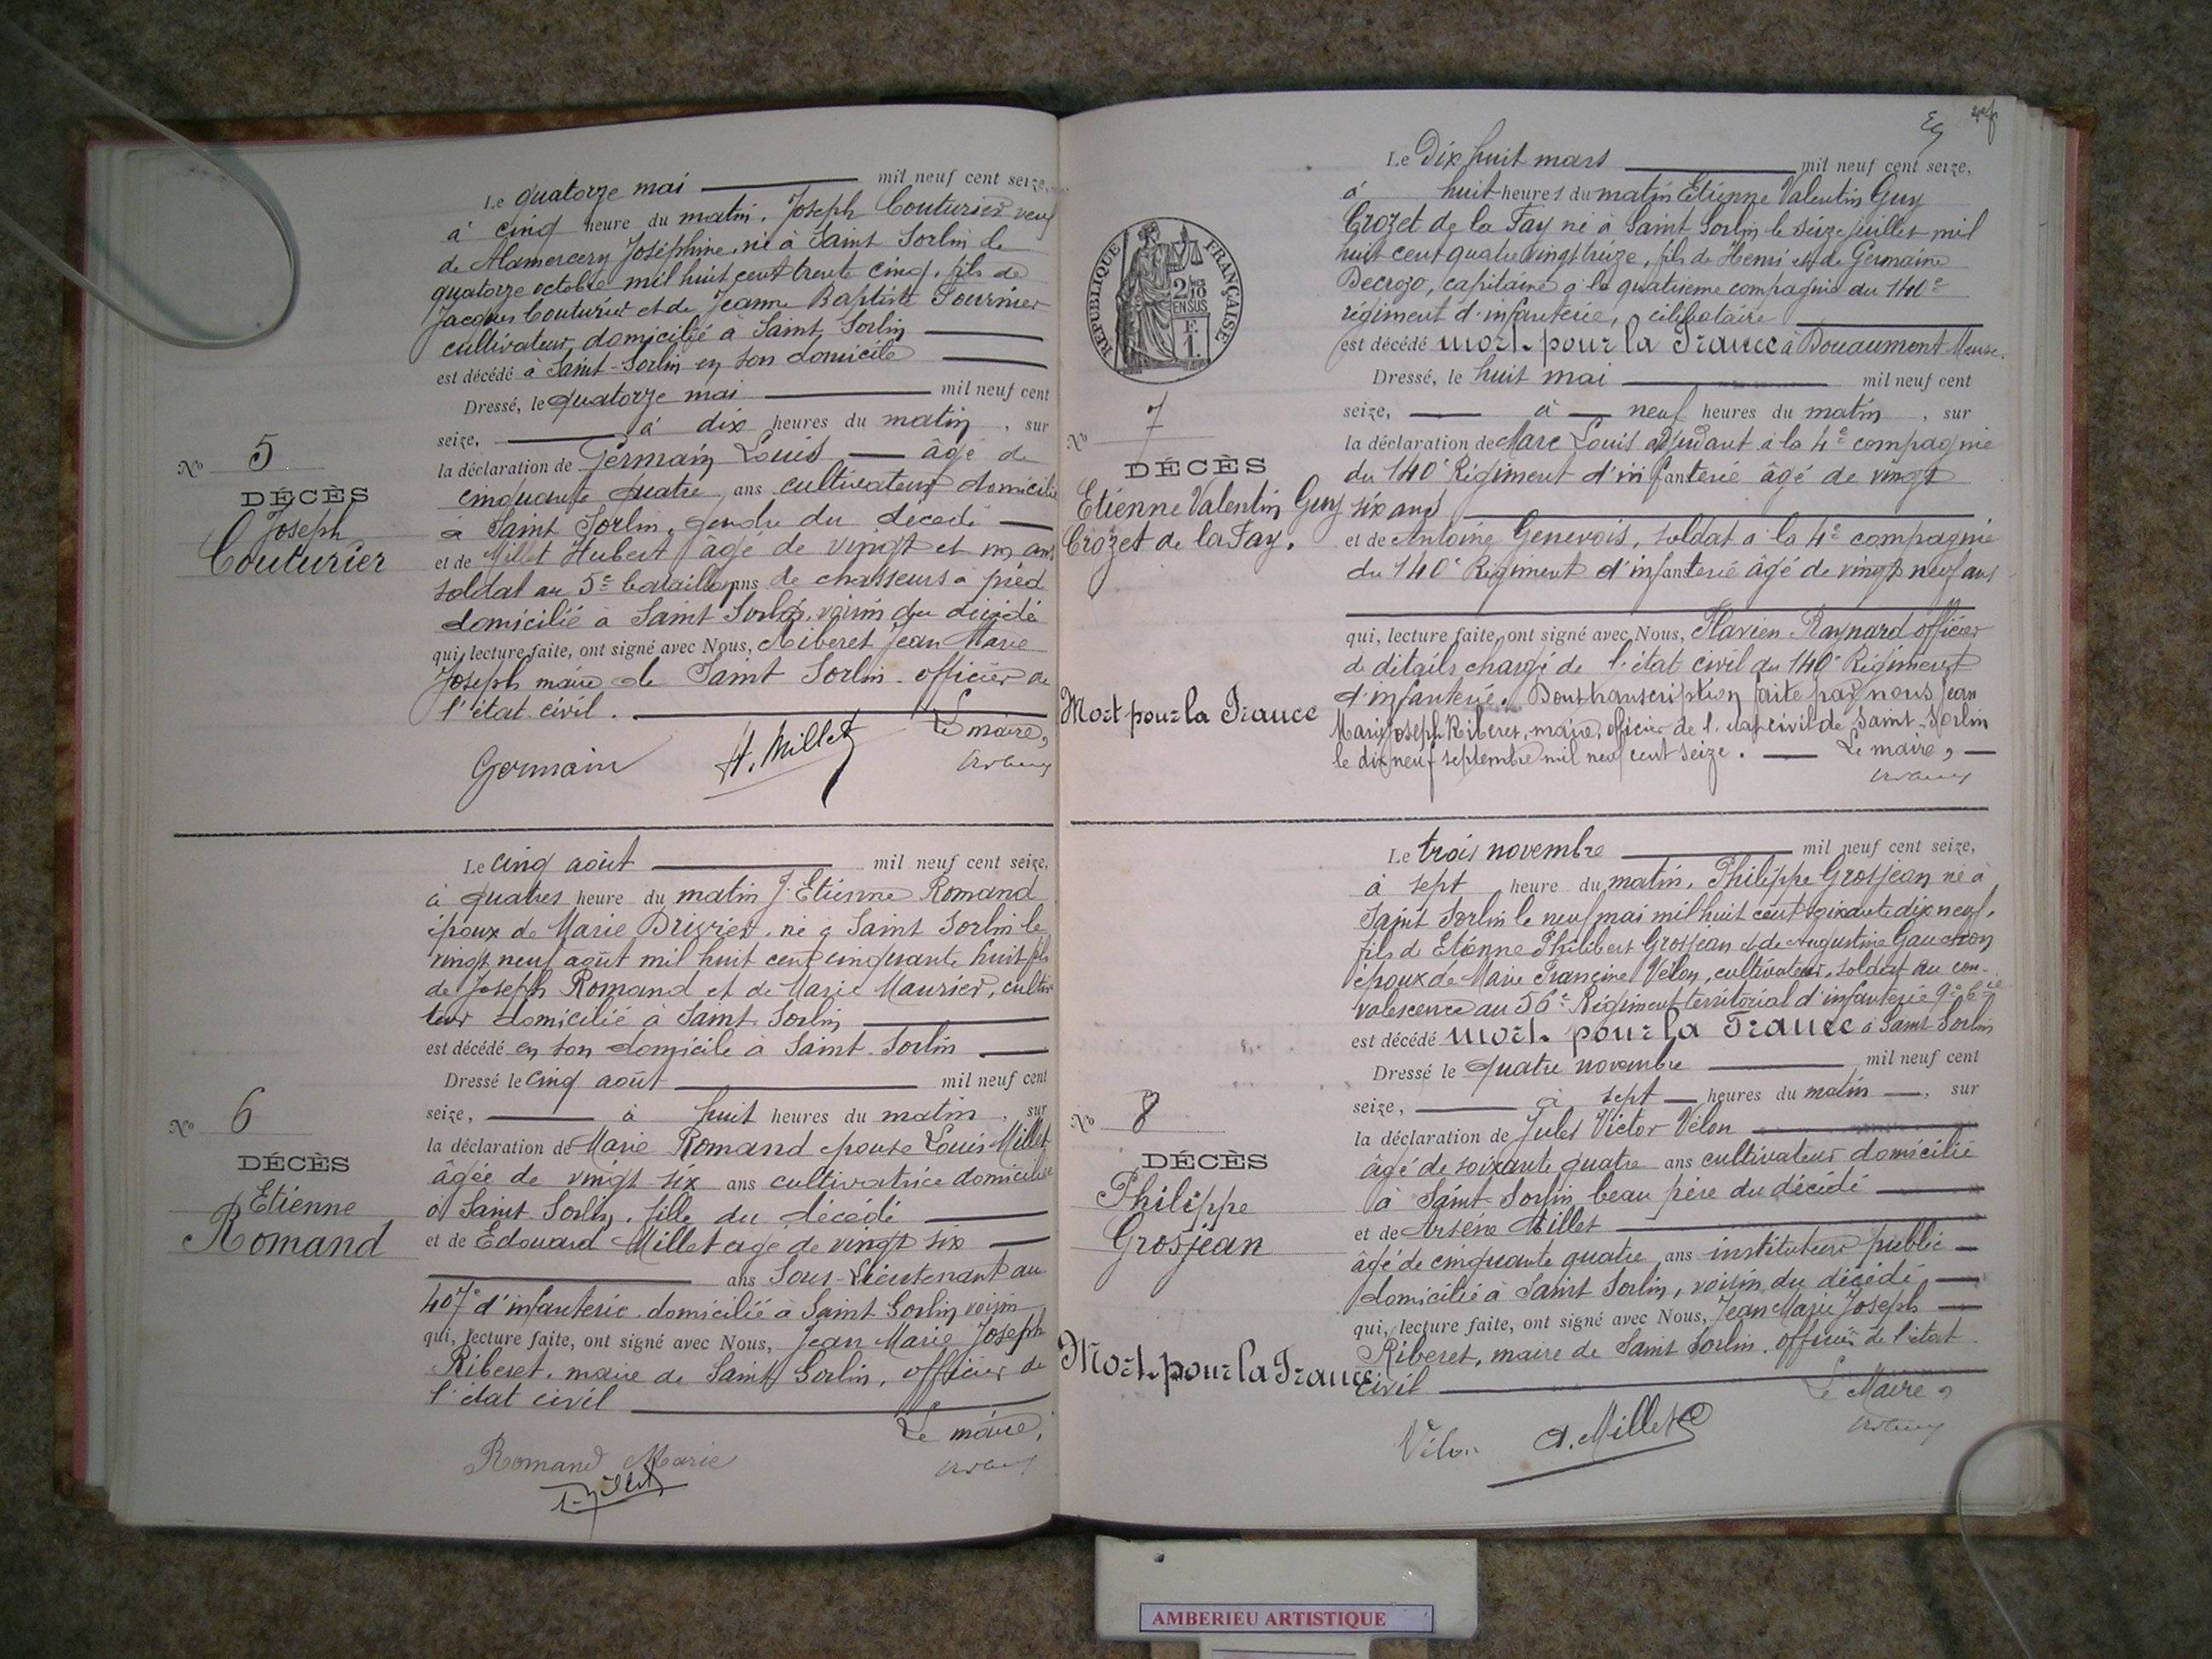 Le quatorze mai mil neuf cent seize,
à cinq heure du matin, Joseph Couturier veuf
de Alamercery Joséphine, né à Saint Sorlin le
quatorze octobre mil huit cent trente cinq, fils de
Jacques Couturier et de Jeanne Baptiste Fournier
cultivateur, domicilié à Saint Sorlin
est décédé à Saint-Sorlin en son domicile
Dressé, le quatorze mai mil neuf cent
seize, à dix heures du matin, sur
la déclaration de Germain Louis âgé de
cinquante quatre ans cultivateur domicilié
à Saint Sorlin, gendre du décédé
et de Millet Hubert âgé de vingt et un ans
soldat au 5e bataillon ans de chasseurs à pied
domicilié à Saint Sorlin, voisin du décédé
qui, lecture faite, ont signé avec Nous, Riberet Jean Marie
Joseph maire de Saint Sorlin officier de
l'état civil.
Le maire,
Germain H. Millet
No 5
DÉCÈS
Joseph
Couturier
Le cinq août mil neuf cent seize,
à quatres heure du matin J. Etienne Romand
époux de Marie Drivier, né à Saint Sorlin le
vingt neuf août mil huit cent cinquante huit fils
de Joseph Romand et de Marie Maurier, cultiva
teur domicilié à Saint Sorlin
est décédé en son domicile à Saint-Sorlin
Dressé le cinq août mil neuf cent
seize, à huit heures du matin, sur
la déclaration de Marie Romand épouse Louis Millet
âgée de vingt-six ans cultivatrice domiciliée
à Saint Sorlin, fille du décédé
et de Edouard Millet âgé de vingt six
ans Sous-Lieutenant au
407e d'infanterie domicilié à Saint Sorlin voisin
qui, lecture faite, ont signé avec Nous, Jean Marie Joseph
Riberet, maire de Saint Sorlin, officier de
l'état civil
Le maire,
Romand Marie
No 6
DÉCÈS
Etienne
Romand
Le Dix huit mars mil neuf cent seize,
à huit heures du matin Etienne Valentin Guy
Crozet de la Fay né à Saint Sorlin le seize juillet mil
huit cent quatre vingt treize, fils de Henri et de Germaine
Decrozo, capitaine à la quatrième compagnie du 140e
régiment d'infanterie, célibataire
est décédé mort pour la France à Douaumont Meuse.
Dressé, le huit mai mil neuf cent
seize, à neuf heures du matin, sur
la déclaration de Marc Louis adjudant à la 4e compagnie
du 140e Régiment d'infanterie âgé de vingt
six ans
et de Antoine Genevois, soldat à la 4e compagnie
du 140e Régiment d'infanterie âgé de vingt neuf ans
qui, lecture faite, ont signé avec Nous, Flavien Raynard officier
de détails chargé de l'état civil du 140e Régiment
d'infanterie. Dont transcription faite par nous Jean
Marie Joseph Riberet, maire, officier de l'état civil de Saint-Sorlin
le dix neuf septembre mil neuf cent seize. Le maire,
RÉPUBLIQUE FRANÇAISE
2/10
EN SUS
F.
1.
No 7
DÉCÈS
Etienne Valentin Guy
Crozet de la Fay.
Mort pour la France
Le trois novembre mil neuf cent seize,
à sept heure du matin, Philippe Grosjean né à
Saint Sorlin le neuf mai mil huit cent soixante dix neuf,
fils de Etienne Philibert Grosjean et de Augustine Gaudron
époux de Marie Francine Vélon, cultivateur, soldat en con-
valescence au 56e Régiment territorial d'infanterie 9e Cie
est décédé mort pour la France à Saint Sorlin
Dressé le quatre novembre mil neuf cent
seize, à sept heures du matin, sur
la déclaration de Jules Victor Vélon
âgé de soixante quatre ans cultivateur domicilié
à Saint-Sorlin beau père du décédé
et de Arsène Millet
âgé de cinquante quatre ans instituteur public
domicilié à Saint Sorlin, voisin du décédé
qui, lecture faite, ont signé avec Nous, Jean Marie Joseph
Riberet, maire de Saint Sorlin, officier de l'état
civil
Le Maire,
Vélon A. Millet
No 8
DÉCÈS
Philippe
Grosjean
Mort pour la France
AMBERIEU ARTISTIQUE